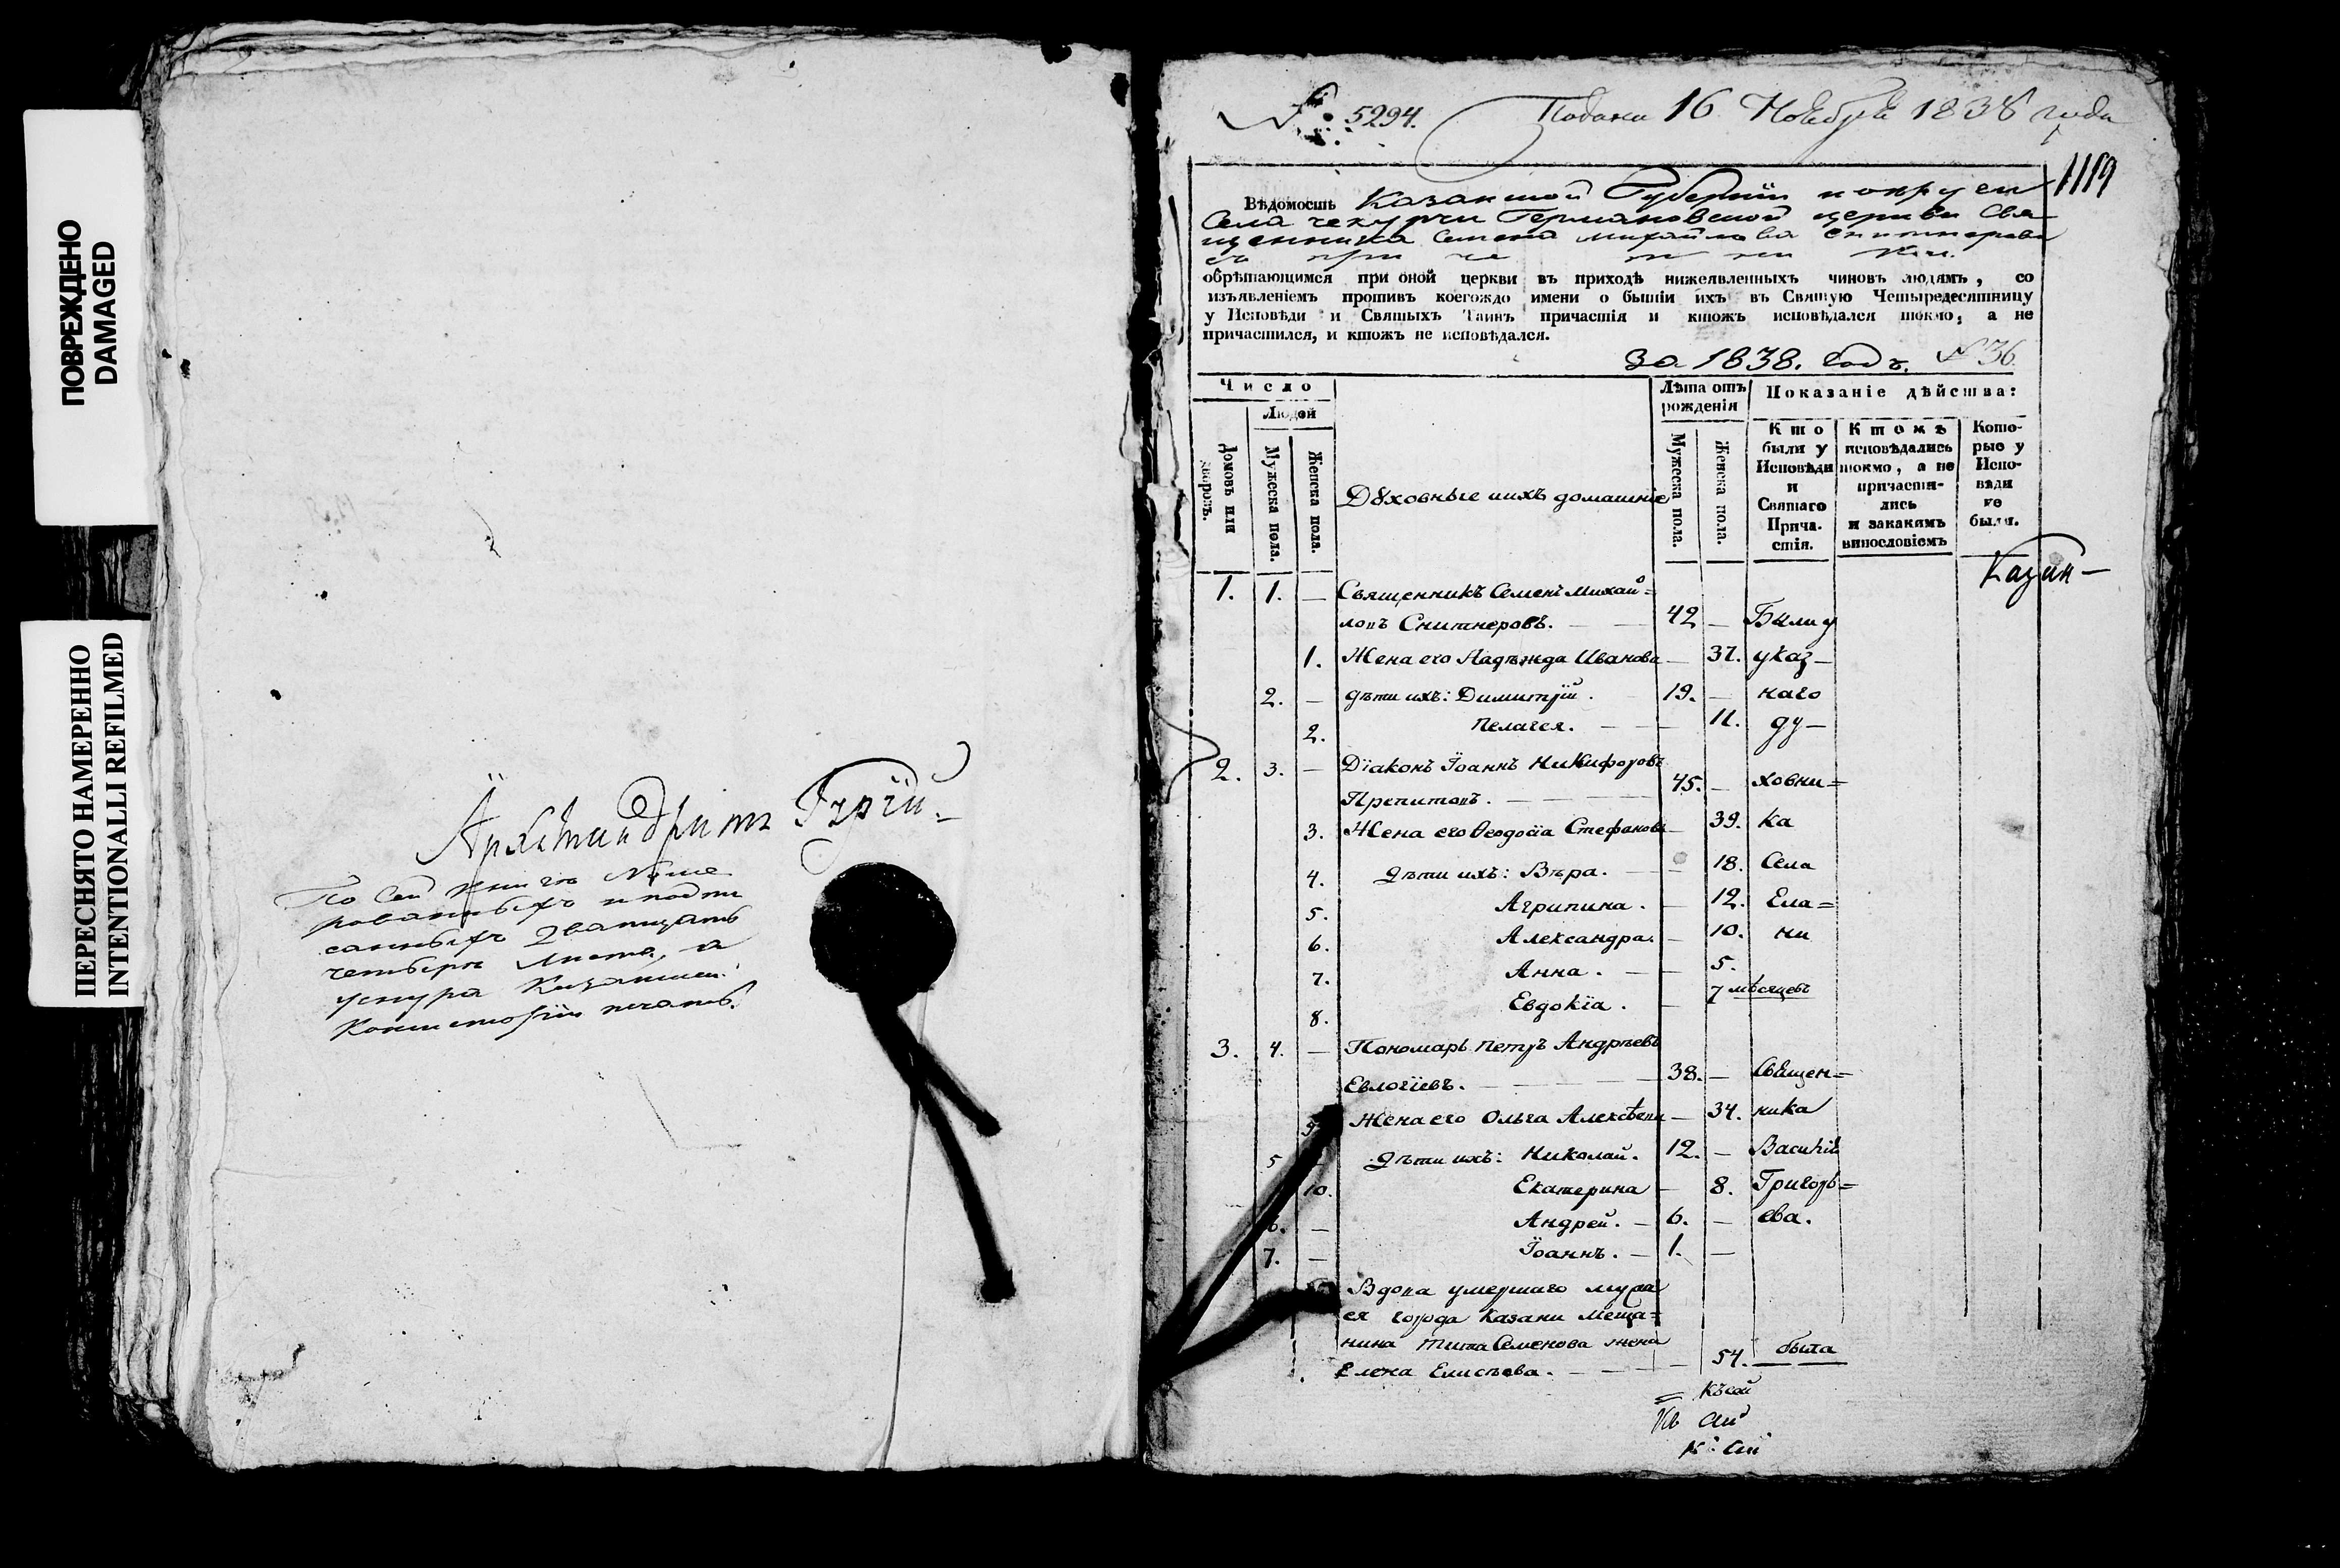 ПОВРЕЖДЕНО
DAMAGED
ПЕРЕСНЯТО НАМЕРЕННО
INTENTIONALLI REFILMED
Архимандритъ Гурій.
По сей книгѣ нуме
рованныхъ и подпи
санныхъ двадцать
четыре листа, а
у снура Казанской
Консисторіи печать.
№ 5294.
Подана 16 Ноября 1838 года
1119
Вѣдомость Казанской Губерніи и округи
Села Чекурчи Германовской церкви Свя
щенника Семена Михайлова Снитнерова
съ причетники.
обрѣтающимся при оной церкви въ приходѣ нижеявленныхъ чиновъ людямъ, со
изъявленіемъ противъ коегождо имени о бытіи ихъ въ Святую Четыредесятницу
у Исповѣди и Святыхъ Таинъ причастія и ктожъ исповѣдался токмо, а не
причастился, и ктожъ не исповѣдался.
за 1838. Годъ. №36
Число
Людей
Домовъ или
дворовъ.
Мужеска пола.
Женска пола.
Дꙋховные ихъ домашніе
Лѣта отъ
рожденія
Мужеска пола.
Женска пола.
Показаніе дѣйства:
Кто
были у
Исповѣди
и
Святаго
Прича-
стія.
Ктожъ
исповѣдались
токмо, а не
причасти-
лись
и закакимъ
винословіемъ
Кото-
рые у
Испо-
вѣди
не
были.
Казан-
1. 1. — Священникъ Семенъ Михай=
ловъ Снитнеровъ. — 42 — Были у
1. Жена его Надѣжда Иванова — 37. указ-
2. — дѣти ихъ: Димитрій. 19. — наго
2. Пелагея. — 11. ду-
2. 3. — Діаконъ Іоаннъ Никифоровъ
Препитовъ. — 45. — ховни=
3. Жена его Ѳеодосіа Стефанова — 39. ка
4. Дѣти ихъ: Вѣра. — 18. Села
5. Агрипина. — 12. Ела=
6. Александра. — 10. ни
7. Анна. — 5.
8. Евдокіа. — 7 мѣсяцевъ
3. 4. — Пономарь Петръ Андрѣевъ
Евлогіевъ. — 38. — Священ=
9 Жена его Ольга Алексѣева — 34. ника
5 — Дѣти ихъ: Николай. 12. — Василія
10. Екатерина — 8. Григорь=
6. — Андрей. — 6. — ева.
7. — Іоаннъ. — 1. —
Вдова умершаго мужа
ея города Казани меща=
нина Тита Семенова жена
Елена Елисѣева. — — 54. была